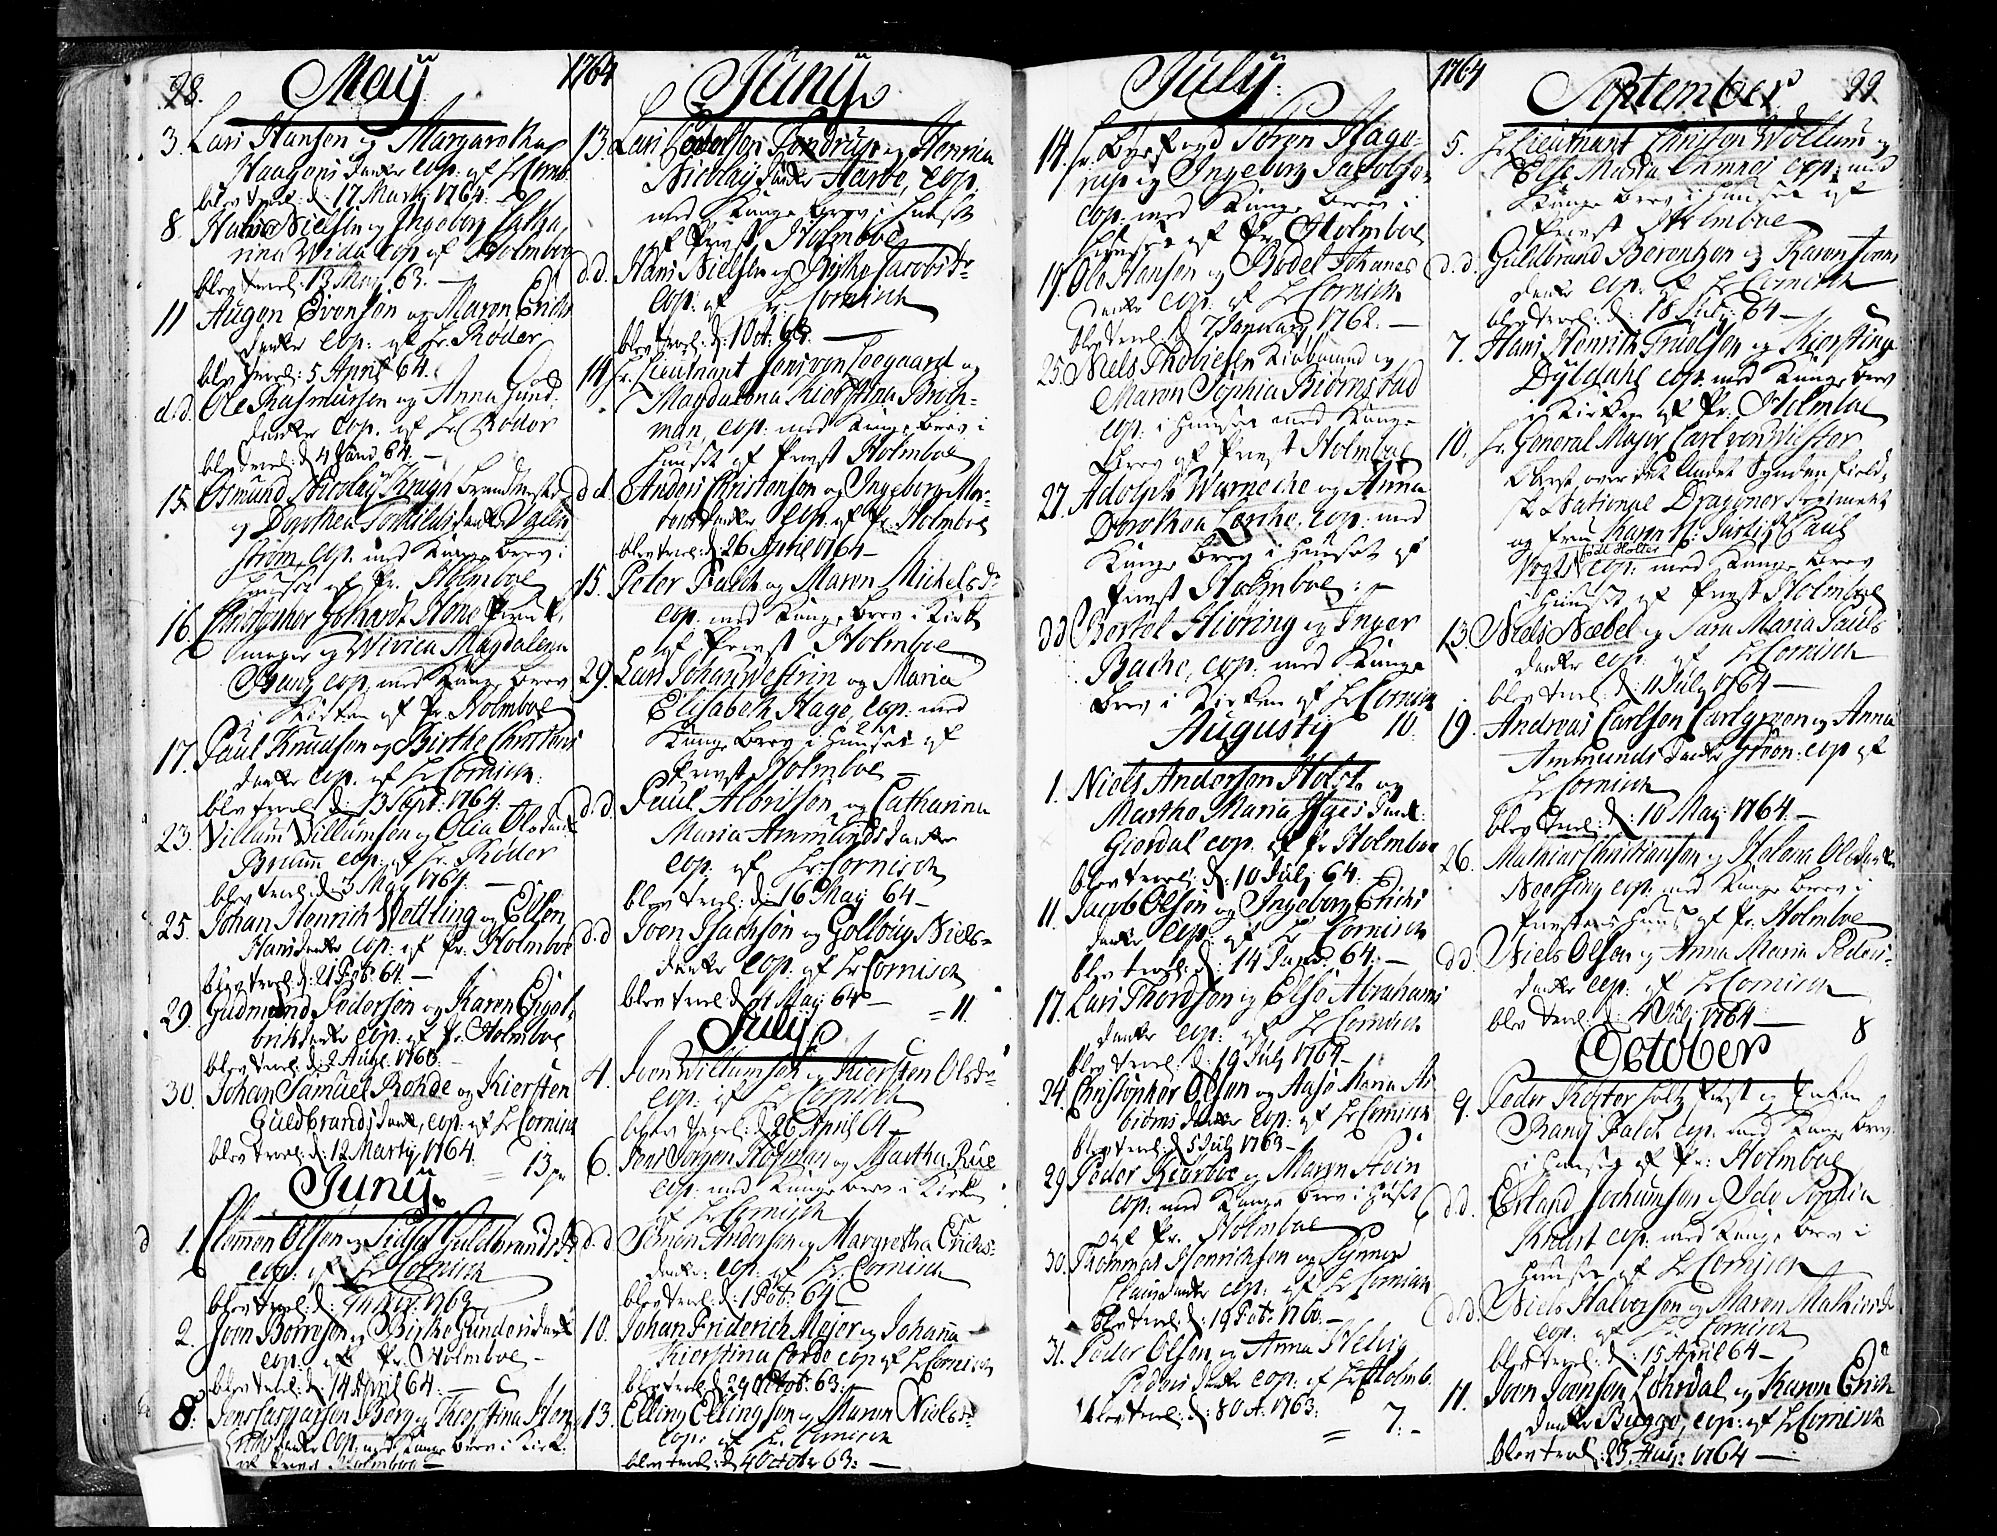 98.
May
1764
3. Lars Hansen og Margaretha
Haagens danke cop: af Hr Corn:
blev trol: d: 17 Marti 1764.
8. Hans Nielsen og Ingeborg Catha
rina Wida cop af Pr Holmboe
blev trol: 13 May 63.
11 Augen Evensen og Maren Erichs
danke cop: af Hr: Röder
blev trol: 5 April 64.
d.d. Ole Rasmussen og Anna Gund
danke cop. af Hr Röder
blev trol: d 4 Janu 64.
15. Osmund Nicolay Kragh Brandmester
og Dorthea
strøm, cop. med Kongebrev i
Huuset af Pr. Holmboe
16. Christopher
mager og Wivica Magdalena
cop. med Konge brev
i Kirken af Pr. Holmboe
17. Paul Knudsen og Birthe Christens
danke cop. af Hr Cornisch:
blev trol: d: 13 Sept: 1764.
23. Villum Villumsen og Olia Olsdank
Bruum cop: af Hr. Röder
blev trol: d 3 May 1764.
25. Johan Henrich Wettling og Ellen
Hansdanke cop: af Pr. Holmboe
blev trol: d: 21 Feb: 64.
29. Gudmund Pedersen og Karen Engel
britsdanke cop: af Pr. Holmboe
blev trol: d 2 Aug: 1763.
30. Johan Samuel Rohde og Kiersten
Guldbrands dank, cop: af Hr Cornisch
blev trol: d: 12 Marty 1764.
= 13 pr
Juny
1. Clemen Olsen og Guldbrandsdr
cop: af Hr Cornisch
blev trol: d: 1763
2. Joen Borresen og Birthe Gundersdank
cop: af Pr. Holmboe
blev trol: d 14 April 64.
8. Jens Caspersen Berg og Kierstina
danke cop. med Konge brev i Kirk:
af Provst Holmboe
Juny
13. Lars og Henrica
Nicolay danke Aaroe, cop:
med Konge brev i Huuset
af Provst Holmboe
d.d. Hans Nielsen og Birthe Jacobsdr
cop: af Hr Cornisch
blev trol: d: 1 Oct: 63.
14 Hr. Lieutnant Jens von Leegaard og
Magdalena Kierstina Brich-
man, cop: med Konge brev i
Huuset af Provst Holmboe
d d. Anders Christensen og Ingeborg Mor-
tensdanke cop. af Pr. Holmboe
blev trol: d 26 April 1764
15. Peter Falch og Maren Michelsdr
cop. med Konge brev i Kirk
af Provst Holmboe
29. Lars Johan Westrin og Maria
Elisabeth Hage, cop: med
Konge brev i Huuset af
Provst Holmboe
d.d. Paul Albrissen og Catharina
Maria Ammundsdanke
cop: af Hr: Cornisch
blev trol: d: 16 May 64
d.d Joen Isachsen og Golborg Niels-
danke cop: af Hr Cornisch
blev trol d May 64
= 11.
July
4. Joen Willumsen og Kiersten Olsdr
cop: af Hr Cornisch
blev trol: d 26 April 64
6. Jens Jørgen og Martha Rue
cop: med Konge brev i Kirk
af Hr Cornisch
d.d Simen Andersen og Margretha Erichs-
danke: cop: af Hr: Cornisch
blev trol: d: 1 Feb: 64
10. Johan Friderich Mejer og Johana
Kierstina Corde cop af Hr Cornisch
blev trol d 29 Octob: 63:
13. Elling Ellingsen og Maren Nielsdr
cop: af Hr. Cornisch
blev trol: d 4 Octobr 63:
July
14. Hr. Søren Hage-
rup og Ingeborg Jacobsen
cop: med Konge brev i
Huuset af Pr. Holmboe
19. Ole Hansen og Bodel Johanes
danke cop. af Hr Cornisch
blev trol d 7 January 1762.
25. Niels Thoresen Kiøbmand og
Maren Sophia Biørnstad
cop: i Huuset med Konge
brev af Provst Holmboe
27. Adolph Warneche og Anna
Dorothea Lerche, cop: med
Konge brev i Huuset af
Provst Holmboe
d d Bertel Hiorring og Inger
Bache, cop: med Konge
brev i Kirken af Hr Cornisch
Augusty
10.
1. Niels Andersen Holst og
Marthe Maria dank:
Giordal cop. af Pr Holmboe
blev trol: d: 10 July 64.
11. Jacob Olsen og Ingeborg Erichs
danke cop: af Hr Cornisch
blev trol: d: 14 Janu 64.
17. Lars Thordsen og Else Abrahams
danke cop: af Hr Cornisch
blev trol: d: 19 July 1764
24. Christopher Olsen og Aase Maria As
biørns danke cop: af Hr Cornisch
blev trol: d 5 July 1763
29 Peder og Maren Stein
cop: med Konge brev i Huuset
af Pr. Holmboe
30. Thommas Henrichsen og
danke cop: af Hr Cornisch
blev trol: d: 19 Feb: 1760:
31. Peder Olsen og Anna Helvig
Peders danke cop: af Hr Holmb.
blev trol: d: 8 Oct. 1763:
= 7.
1764
September
99
5. Hr Lieutnant Christen Wollum og
Else Maria cop: med
Konge brev i Huuset af
Provst Holmboe
d.d. Guldbrand Berentzen og Karen Joens
danke cop: af Hr Cornisch
blev trol: d: 18 July 64
7. Hans Henrich Truelsen og Kierstine
Dybdahl cop: med Konge brev
i Kirken af Pr. Holmboe
10. Hr. General Major Carl von
Oberst over det Andet Syndenfield-
ske National Dragouner Regiment
og Frue Karen Sl: Justis R: Paul
Vogts født Holter cop: med Konge brev
i Huuset af Provst Holmboe
13. Niels Næbel og Sara Maria Pauls
danke cop. af Hr Cornisch
blev trol: d: 4 July 1764
19. Andreas Carlsen Carlgreen og Anna
Ammunds danke Green: cop af
Hr Cornisch
blev trol: d: 10 May 1764.
26. Mathias Christiansen og Helena Olsdanke
cop: med Konge brev i
Provstens Huus af Pr. Holmboe
d d. Niels Olsen og Anna Maria Peders-
danke cop. af Hr Cornisch
blev trol: d: 4 July 1764
8
October
9. Peder og Enken
Rang Falch cop: med Konge brev
i Huuset af Pr: Holmboe
d.d. Erland Jochumsen og Ide Sophia
Knust cop: med Konge brev i
Huuset af Hr Cornisch
d.d. Niels Halvorsen og Maren Mathisdr
cop: af Hr. Cornisch
blev trol: d: 15 April 64
11. Joen Joensen Lohrdal og Karen Erich
danke Bugge, cop: af Hr Cornisch
blev trol: d: 23 Aug: 1764